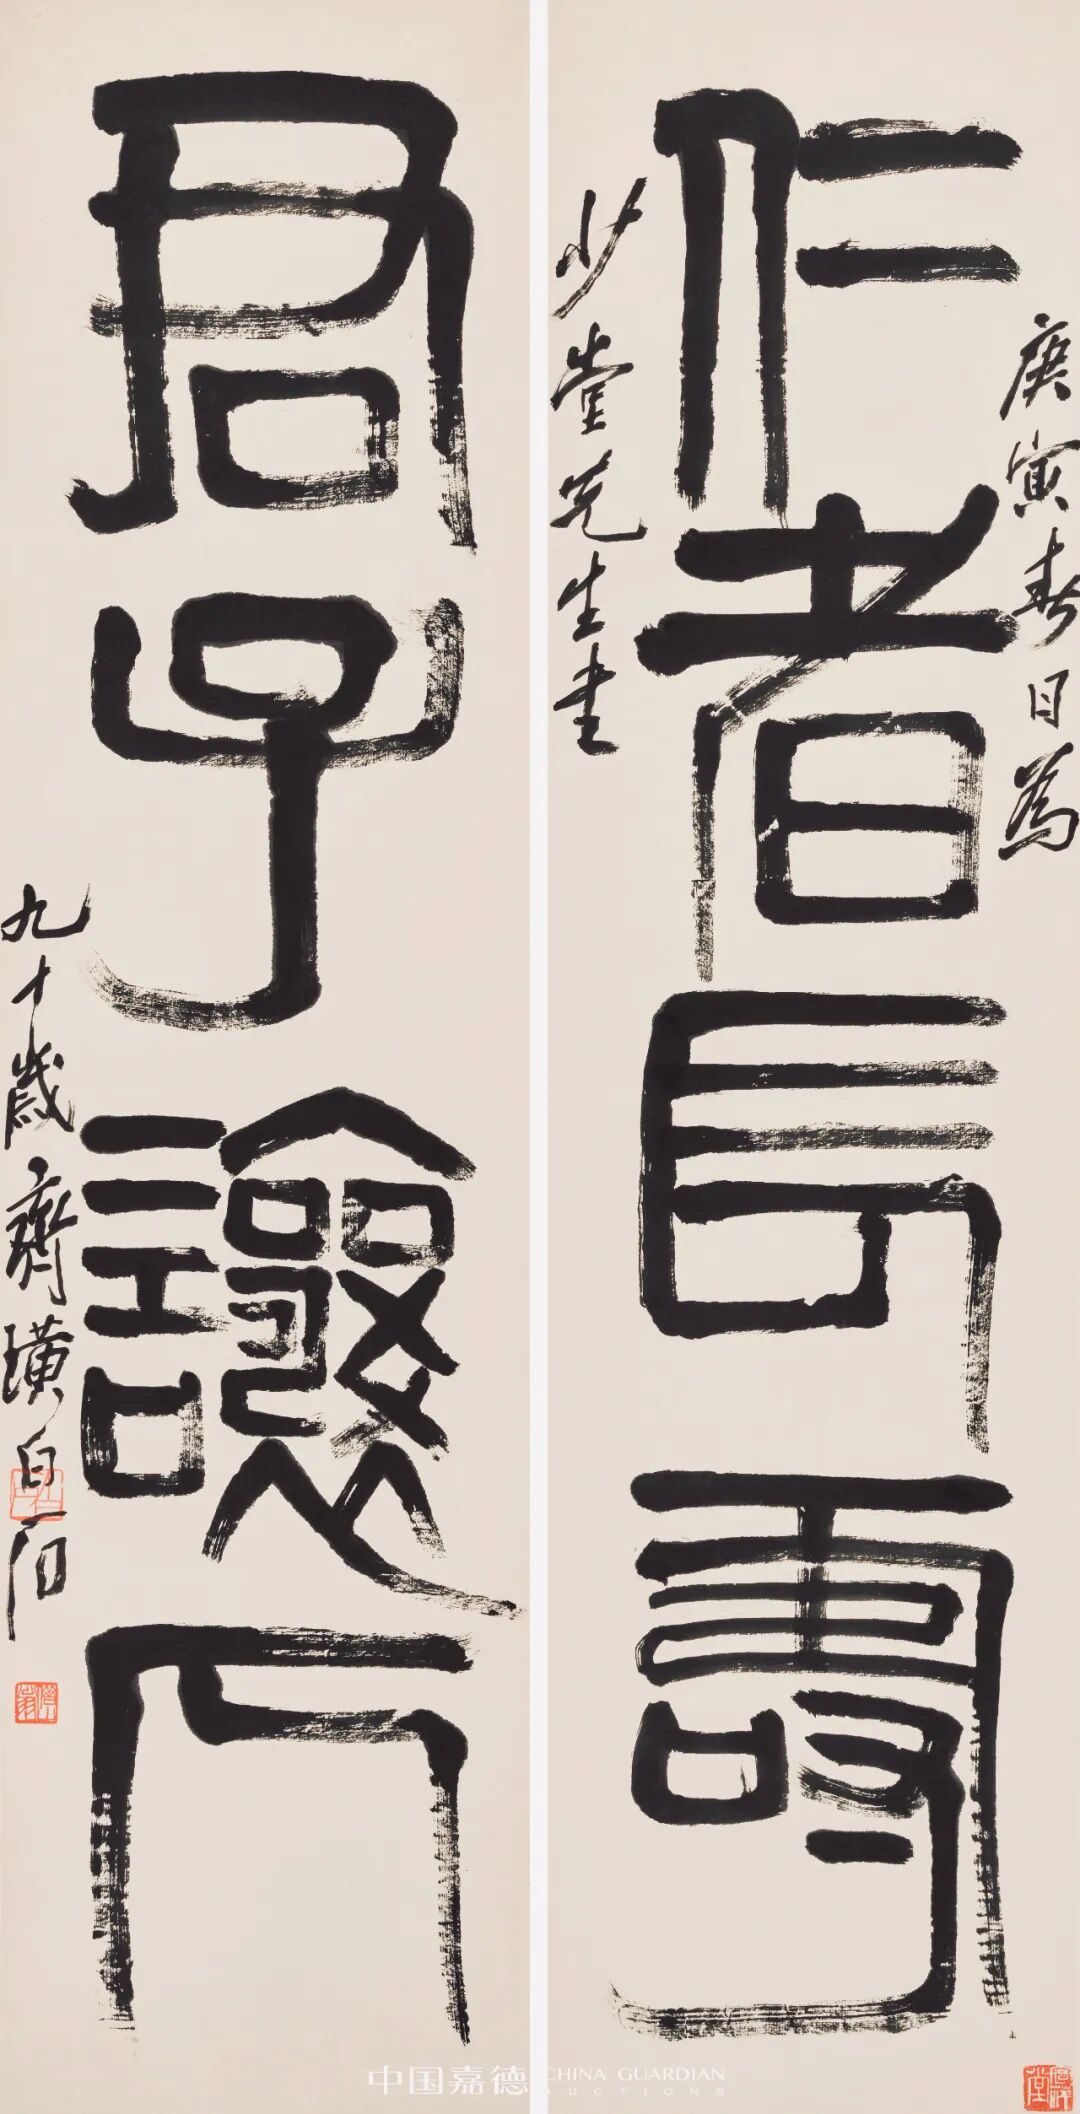 庚寅春日為
仁者長壽
少堂先生書
君子讓人
九十歲齊璜白石
中国嘉德
CHINA GUARDIAN
AUCTIONS